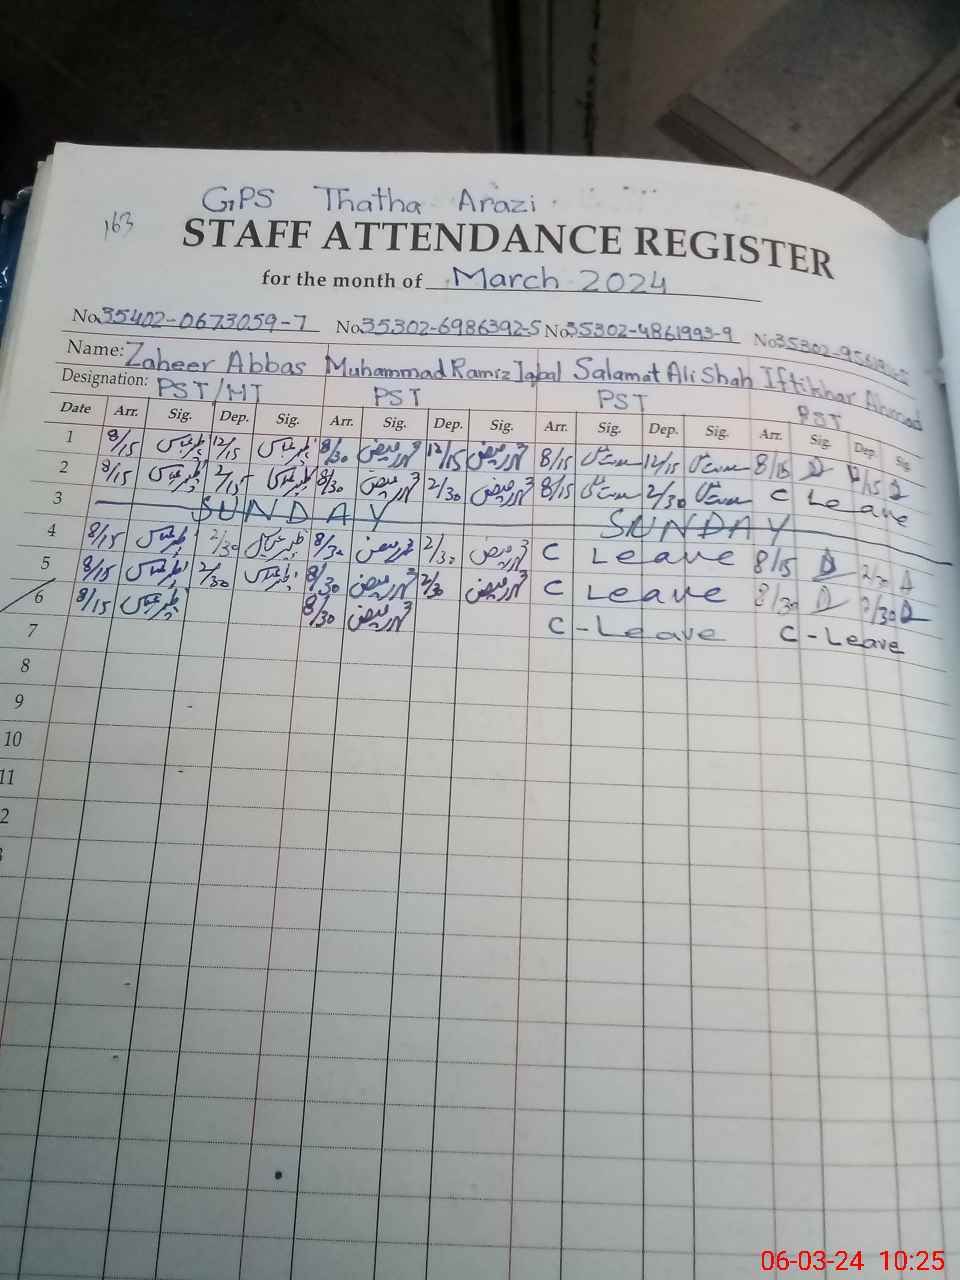 GPS Thatha Arazi
163
STAFF ATTENDANCE REGISTER
for the month of March 2024
No. 35402-0673059-7 No. 35302-6986392-5 No. 35302-4861993-9 No. 35302-
Name: Zaheer Abbas Muhammad Ramiz Iqbal Salamat Ali Shah Iftikhar Ahmad
Designation: PST/MT PST PST PST
Date Arr. Sig. Dep. Sig. Arr. Sig. Dep. Sig. Arr. Sig. Dep. Sig. Arr. Sig. Dep. Sig.
1 8/15 ظہیر عباس 12/15 ظہیر عباس 8/30 12/15 8/15 12/15 8/15
2 8/15 ظہیر عباس 2/15 ظہیر عباس 8/30 2/30 8/15 2/30 C Leave
3 SUNDAY SUNDAY
4 8/15 ظہیر عباس 2/30 ظہیر عباس 8/30 2/30 C Leave 8/15 2/30
5 8/15 ظہیر عباس 2/30 ظہیر عباس 8/30 2/30 C Leave 8/30 2/30
6 8/15 ظہیر عباس 8/30 C-Leave C-Leave
7
8
9
10
11
2
06-03-24 10:25